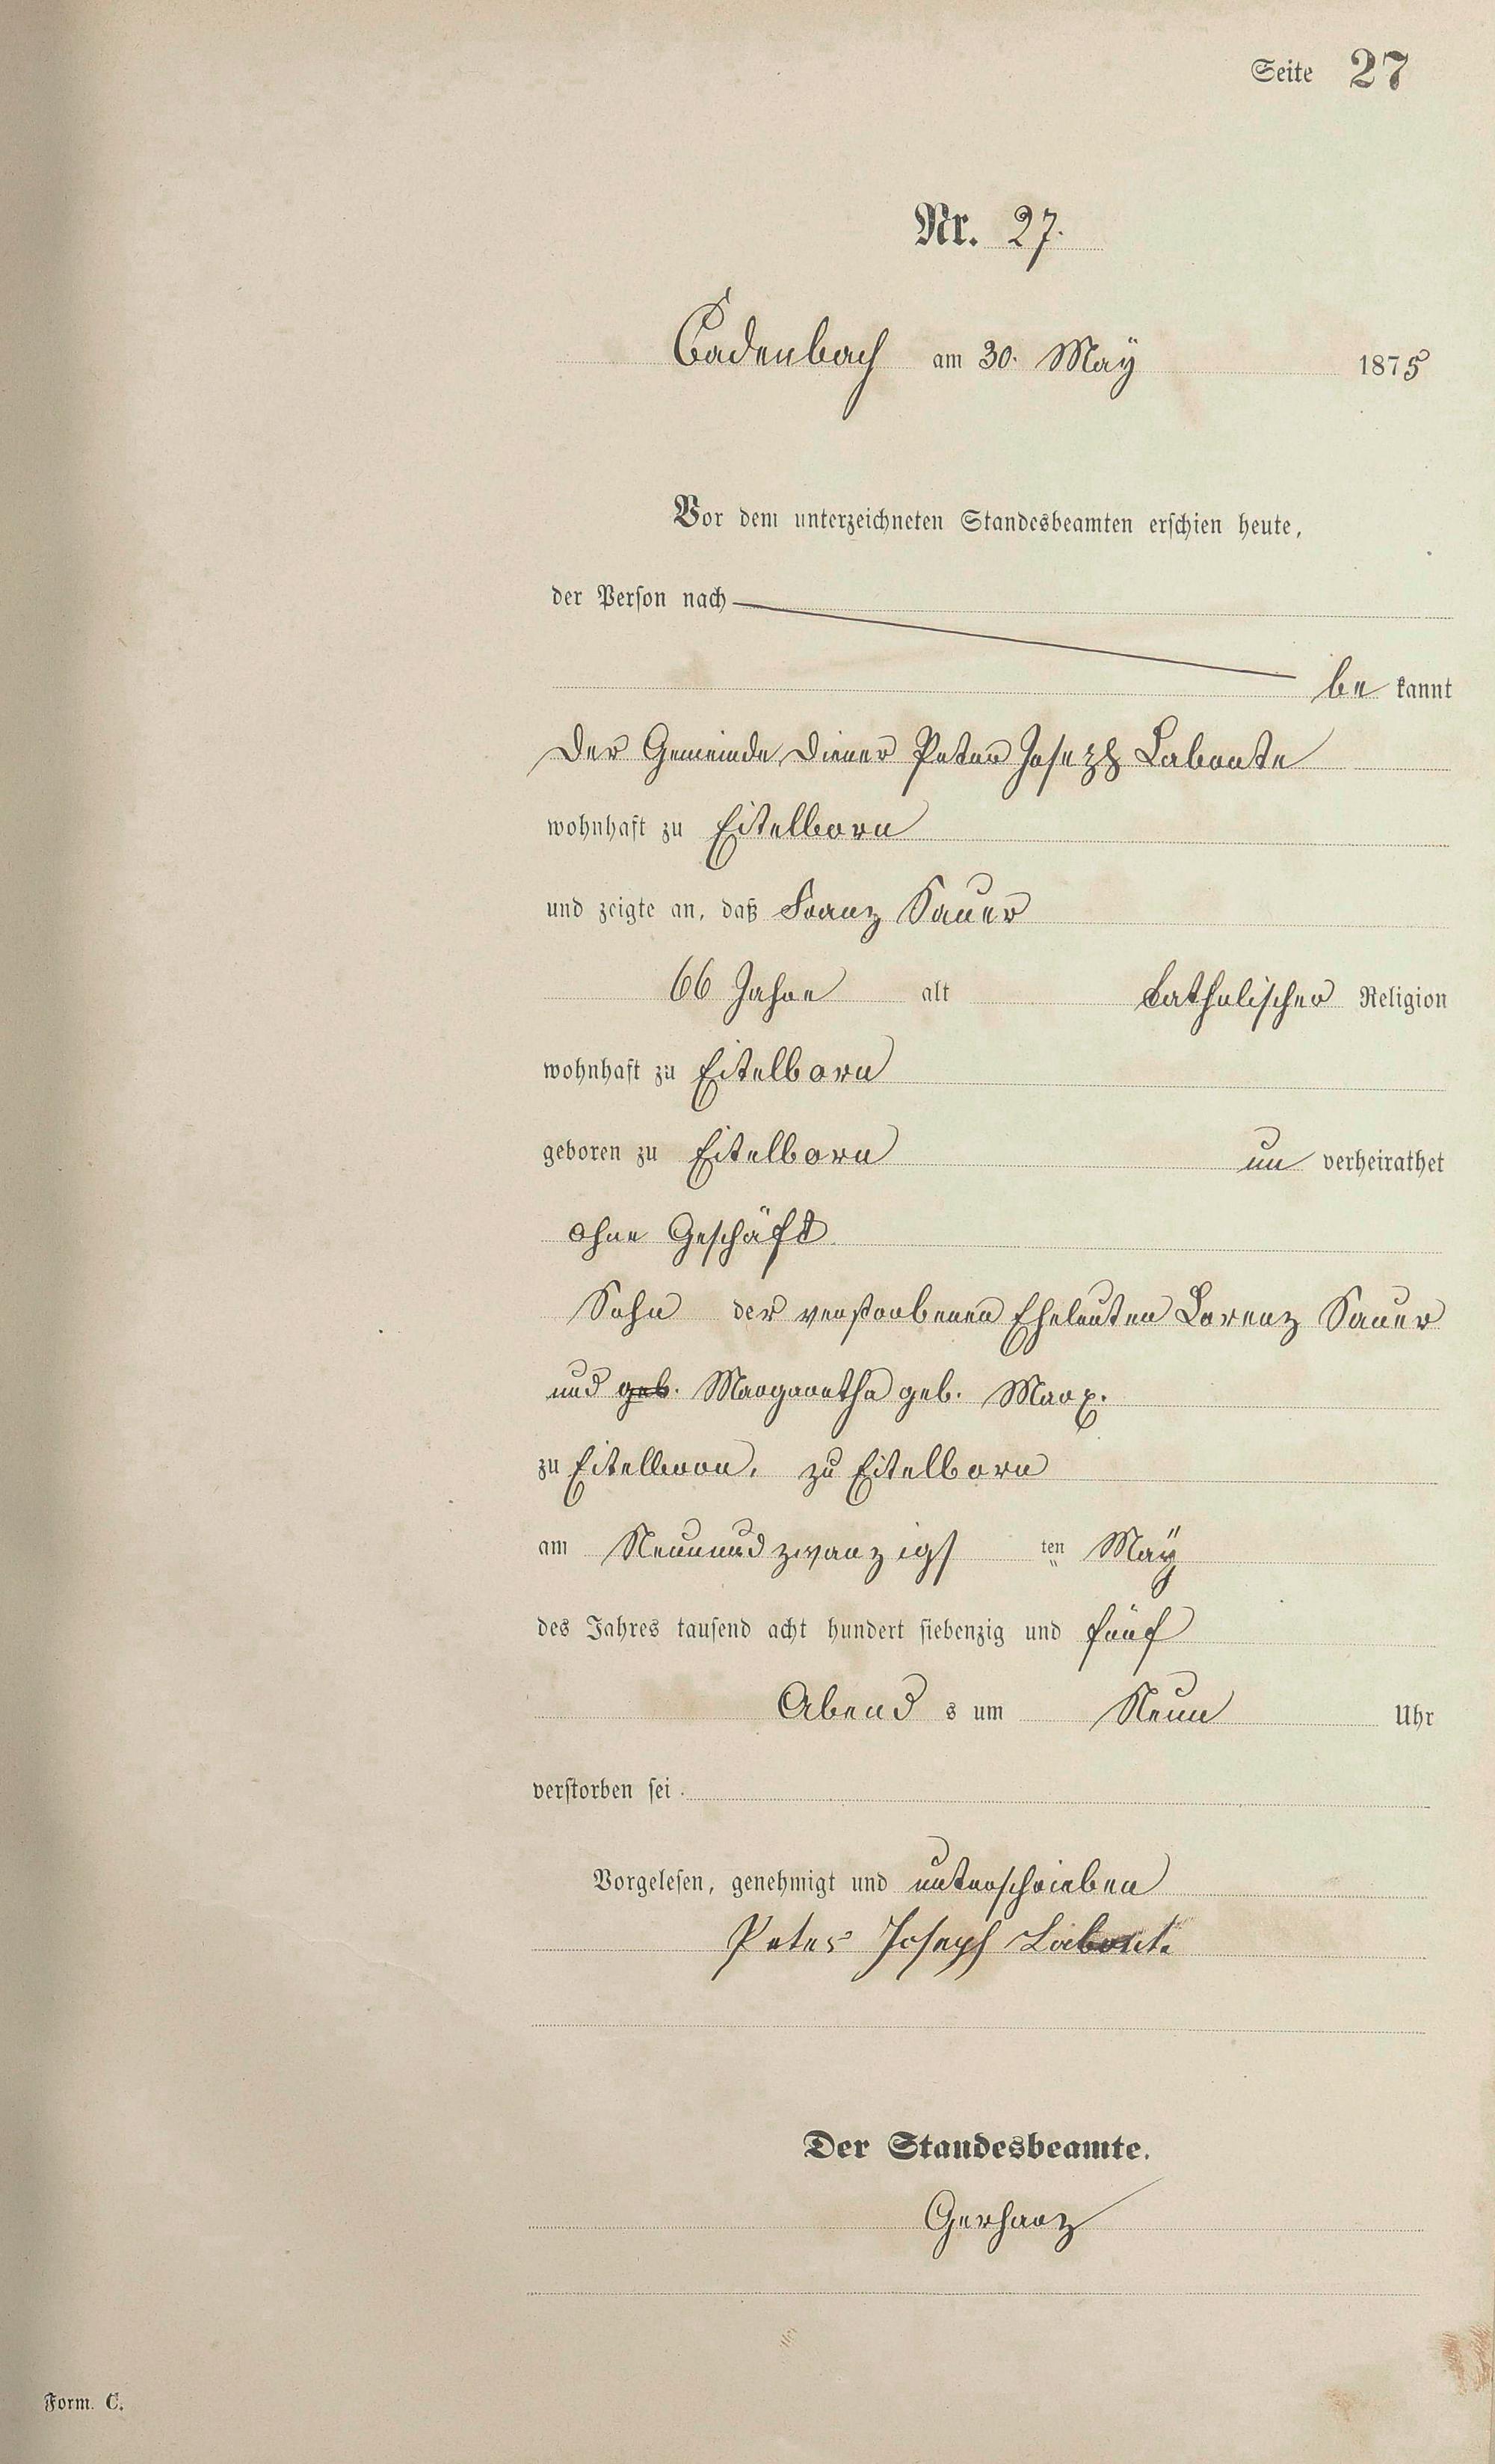 Seite 27
Nr. 27.
Cadenbach am 30. Maÿ 1875
Vor dem unterzeichneten Standesbeamten erschien heute,
der Person nach
be kannt
der Gemeinde Diener Peter Joseph Labonte
wohnhaft zu Eitelborn
und zeigte an, daß Franz Sauer
66 Jahre alt katholischer Religion
wohnhaft zu Eitelborn
geboren zu Eitelborn un verheirathet
ohne Geschäft
Sohn der verstorbenen Eheleuten Lorenz Sauer
und geb. Margaretha geb. Marx.
zu Eitelborn, zu Eitelborn
am Neunundzwanzigs ten Maÿ
des Jahres tausend acht hundert siebenzig und fünf
Abend s um Neun Uhr
verstorben sei.
Vorgelesen, genehmigt und unterschrieben
Peter Joseph Labont.
Der Standesbeamte.
Gerharz
Form. C.